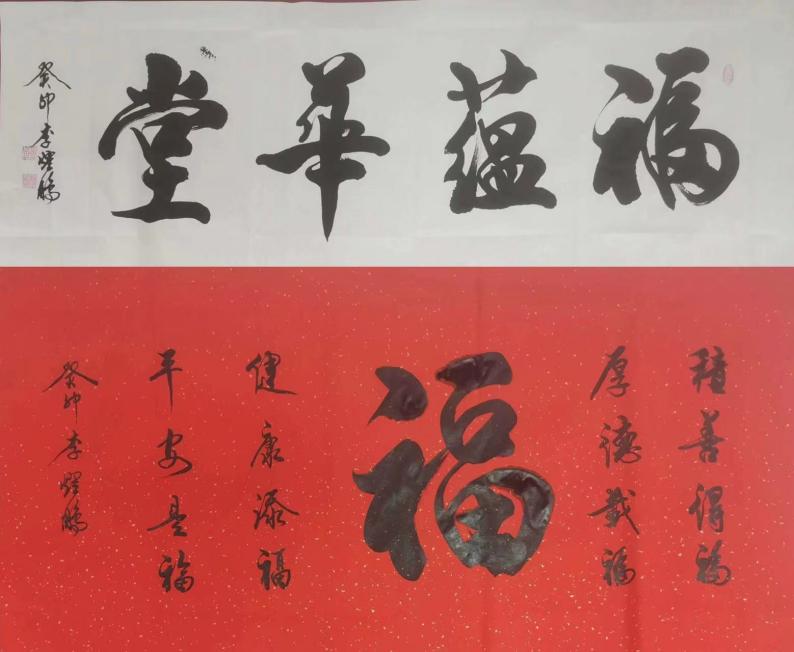 福蕴華堂
癸卯 李耀鹏
積善得福
厚德載福
福
健康添福
平安是福
癸卯 李耀鹏